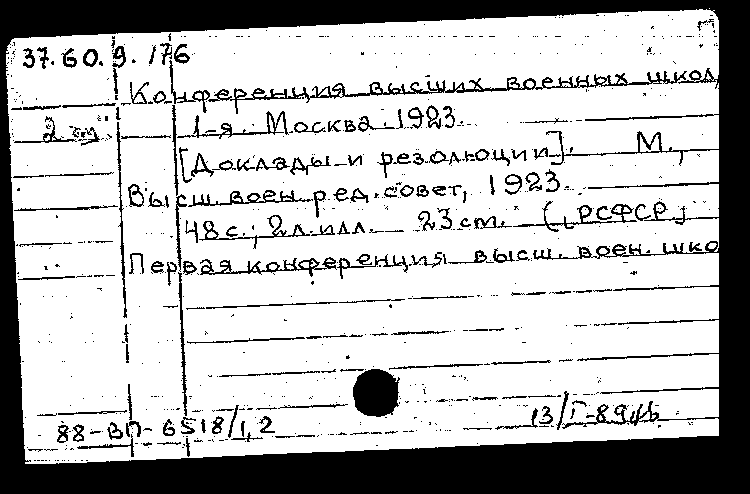 37.60.9.176
Конференция высших военных школ,
2 1-я. Москва. 1923.
[Доклады и резолюции]. М.,
Высш. воен. ред. совет, 1923.
48 с.; 2 л. илл. 23 cm. ([РСФСР]
Первая конференция высш. воен. шко
88-ВП-6518/1,2 13/I-89